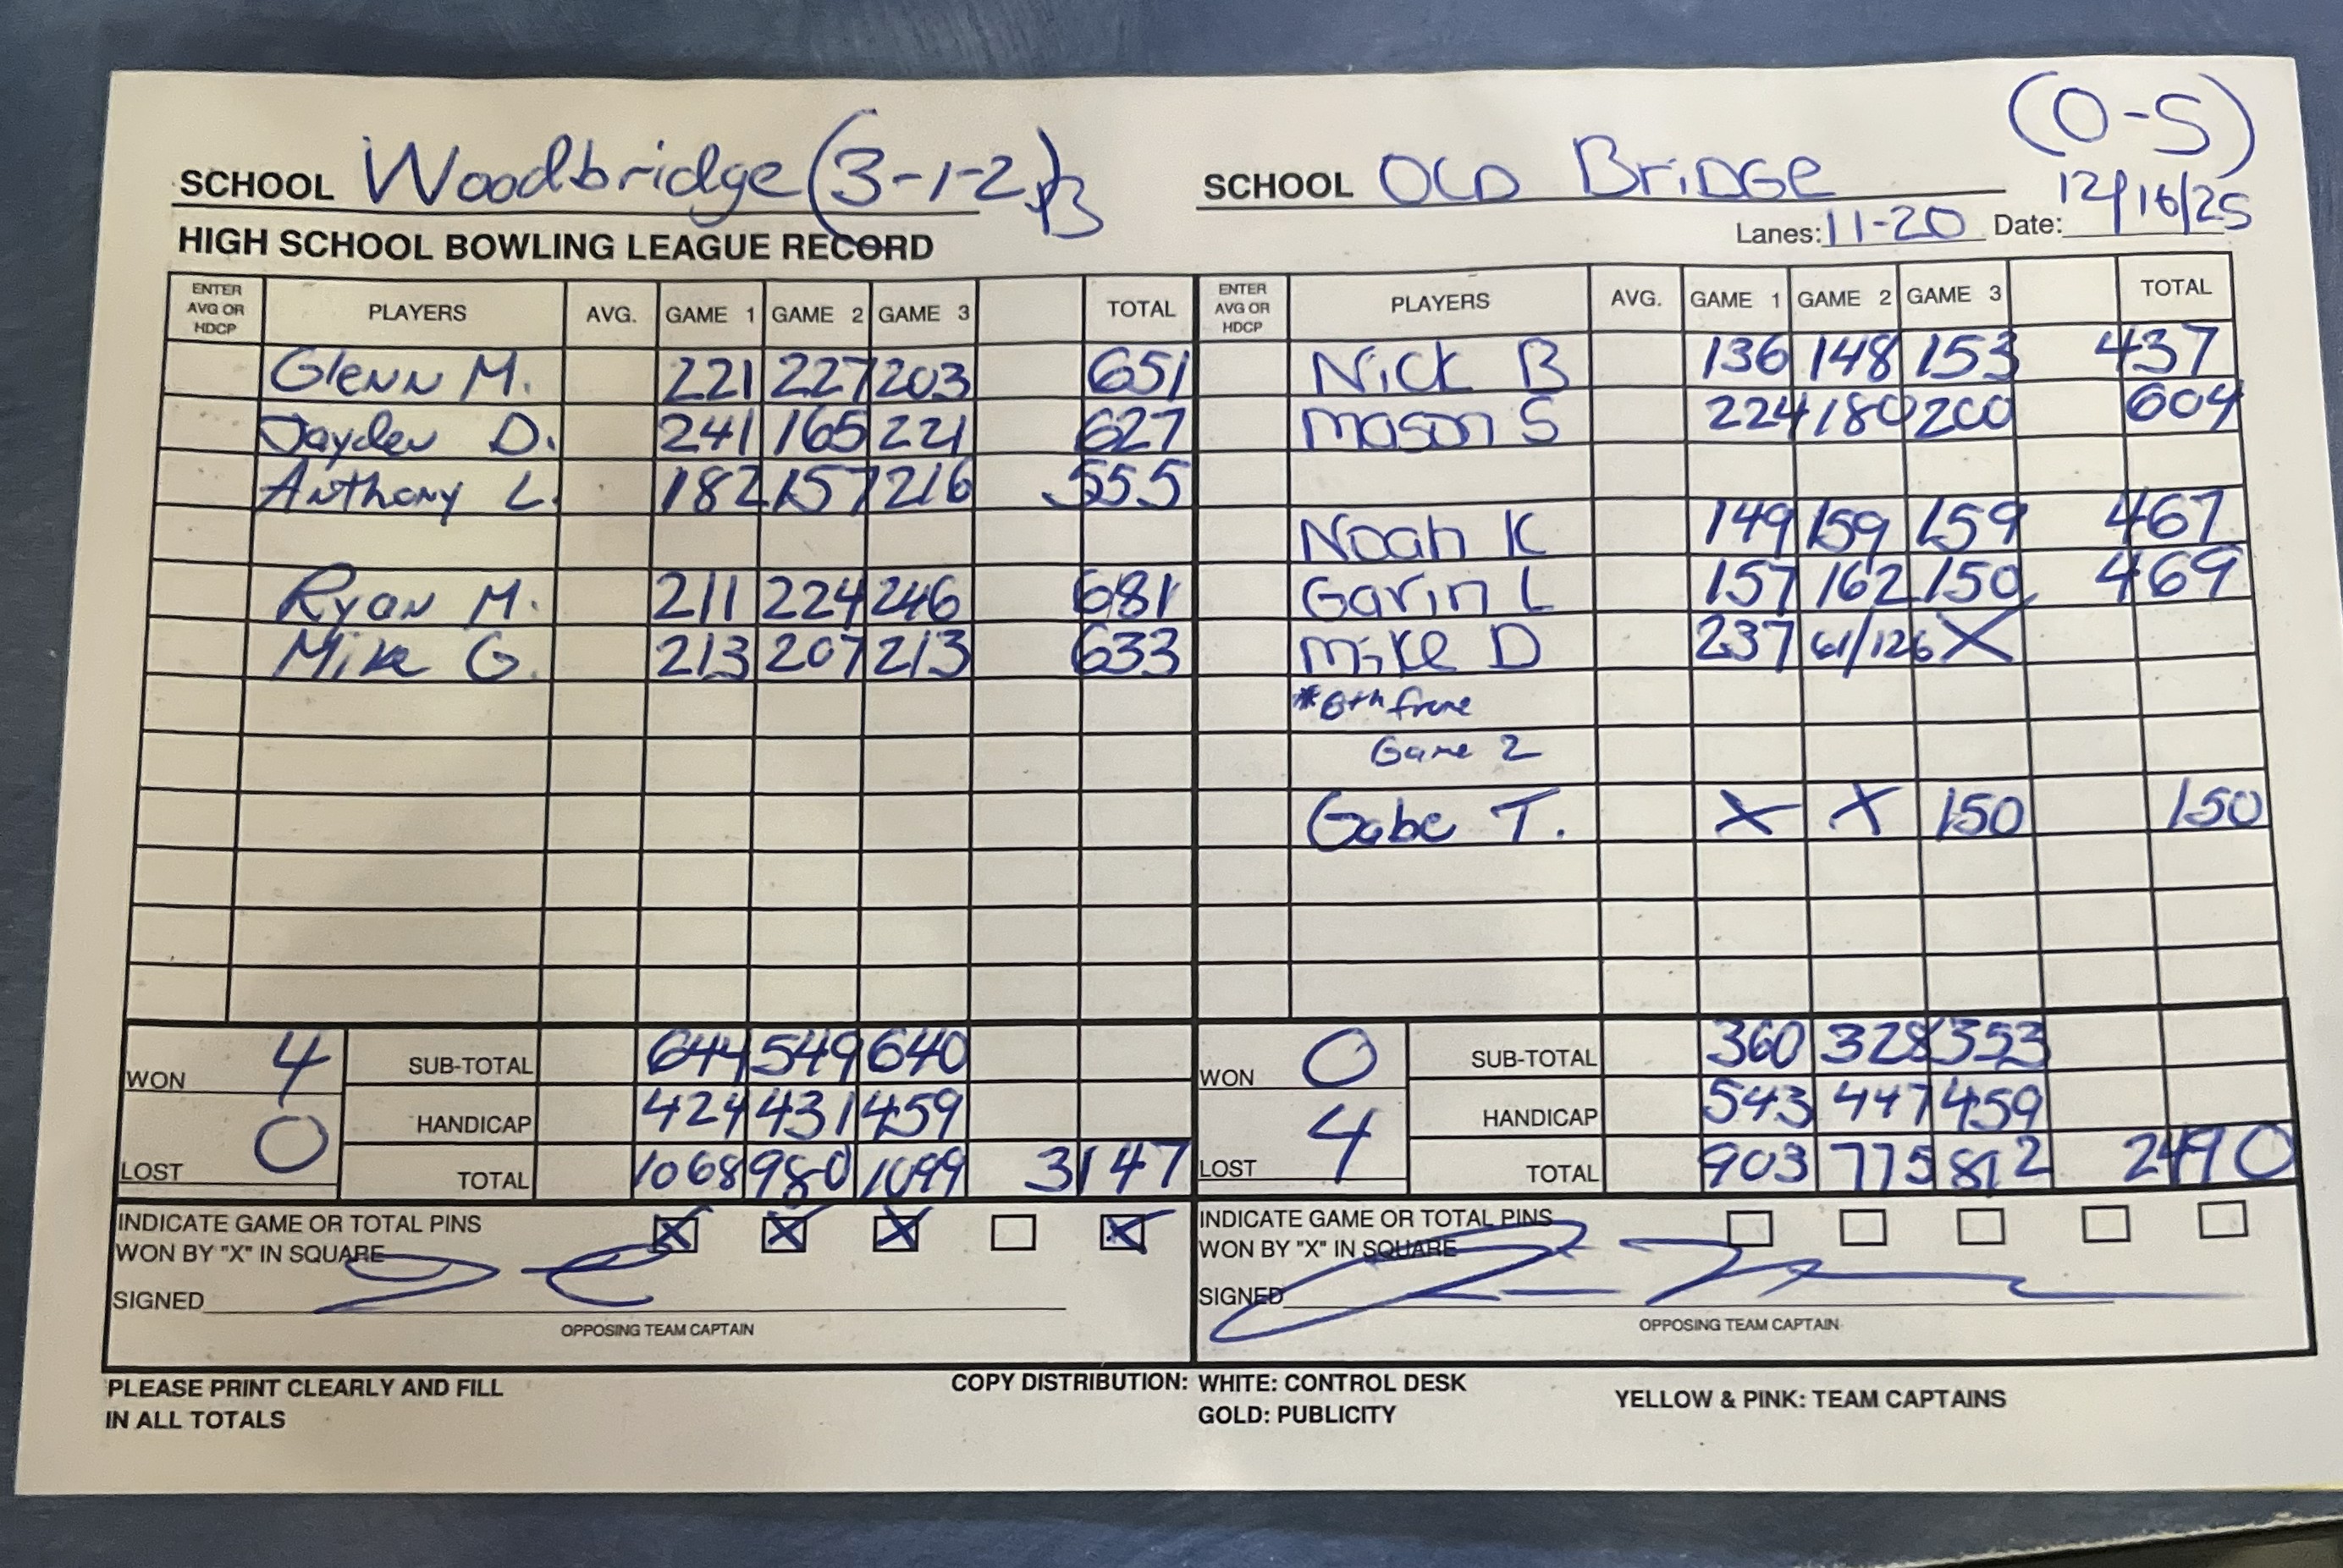 (0-5)
SCHOOL Woodbridge (3-1-2) SCHOOL OLD BRIDGE
12/16/25
Lanes: 11-20 Date:
HIGH SCHOOL BOWLING LEAGUE RECORD
ENTER AVG OR HDCP PLAYERS AVG. GAME 1 GAME 2 GAME 3 TOTAL ENTER AVG OR HDCP PLAYERS AVG. GAME 1 GAME 2 GAME 3 TOTAL
Glenn M. 221 227 203 651 Nick B 136 148 153 437
Jayden D. 241 165 221 627 Mason S 224 180 200 604
Anthony L. 182 157 216 555
Noah K 149 159 159 467
Ryan M. 211 224 246 681 Gavin L 157 162 150 469
Mike G. 213 207 213 633 Mike D 237 61/126 X
*6th frame
Game 2
Gabe T. X X 150 150
WON 4 SUB-TOTAL 644 549 640 WON 0 SUB-TOTAL 360 328 353
HANDICAP 424 431 459 HANDICAP 543 447 459
LOST 0 TOTAL 1068 980 1099 3147 LOST 4 TOTAL 903 775 812 2490
INDICATE GAME OR TOTAL PINS X X X X INDICATE GAME OR TOTAL PINS
WON BY "X" IN SQUARE WON BY "X" IN SQUARE
SIGNED SIGNED
OPPOSING TEAM CAPTAIN OPPOSING TEAM CAPTAIN
PLEASE PRINT CLEARLY AND FILL
IN ALL TOTALS
COPY DISTRIBUTION: WHITE: CONTROL DESK YELLOW & PINK: TEAM CAPTAINS
GOLD: PUBLICITY